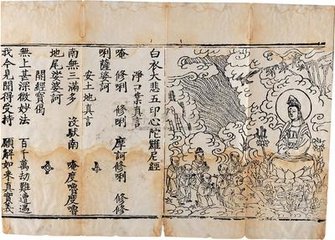 白衣大悲五印心陀羅尼經
淨口業真言
唵　修唎　修唎　摩訶修唎　修修
唎薩婆訶
安土地真言
南無三滿多　沒馱喃　唵度嚕度嚕
地尾娑婆訶
開經寶偈
無上甚深微妙法　百千萬劫難遭遇
我今見聞得受持　願解如來真實義